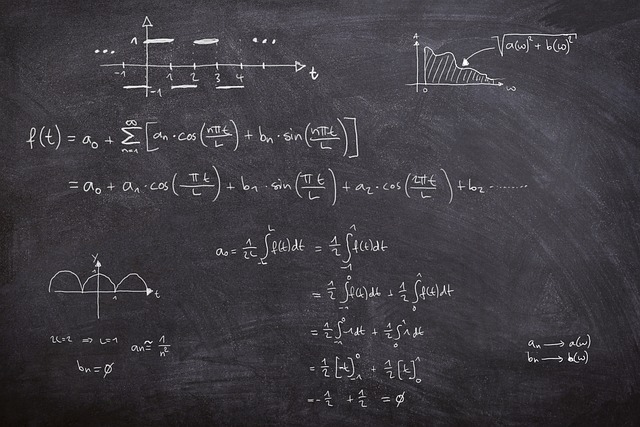 1
... ...
-1 1 2 3 4 t
-1
A
√a(w)² + b(w)²
0 w
f(t) = a₀ + ∑ₙ₌₁^∞ [aₙ · cos(nπt/L) + bₙ · sin(nπt/L)]
= a₀ + a₁ · cos(πt/L) + b₁ · sin(πt/L) + a₂ · cos(2πt/L) + b₂ ........
a₀ = 1/2L ∫₋L^L f(t)dt = 1/2 ∫₋₁^1 f(t)dt
= 1/2 ∫₋₁^0 f(t)dt + 1/2 ∫₀^1 f(t)dt
= 1/2 ∫₋₁^0 -1dt + 1/2 ∫₀^1 1dt
= 1/2 [-t]₋₁^0 + 1/2 [t]₀^1
= -1/2 + 1/2 = ∅
y
1
1 t
2L=2 ⇒ L=1 aₙ ≅ 1/n²
bₙ = ∅
aₙ → a(w)
bₙ → b(w)